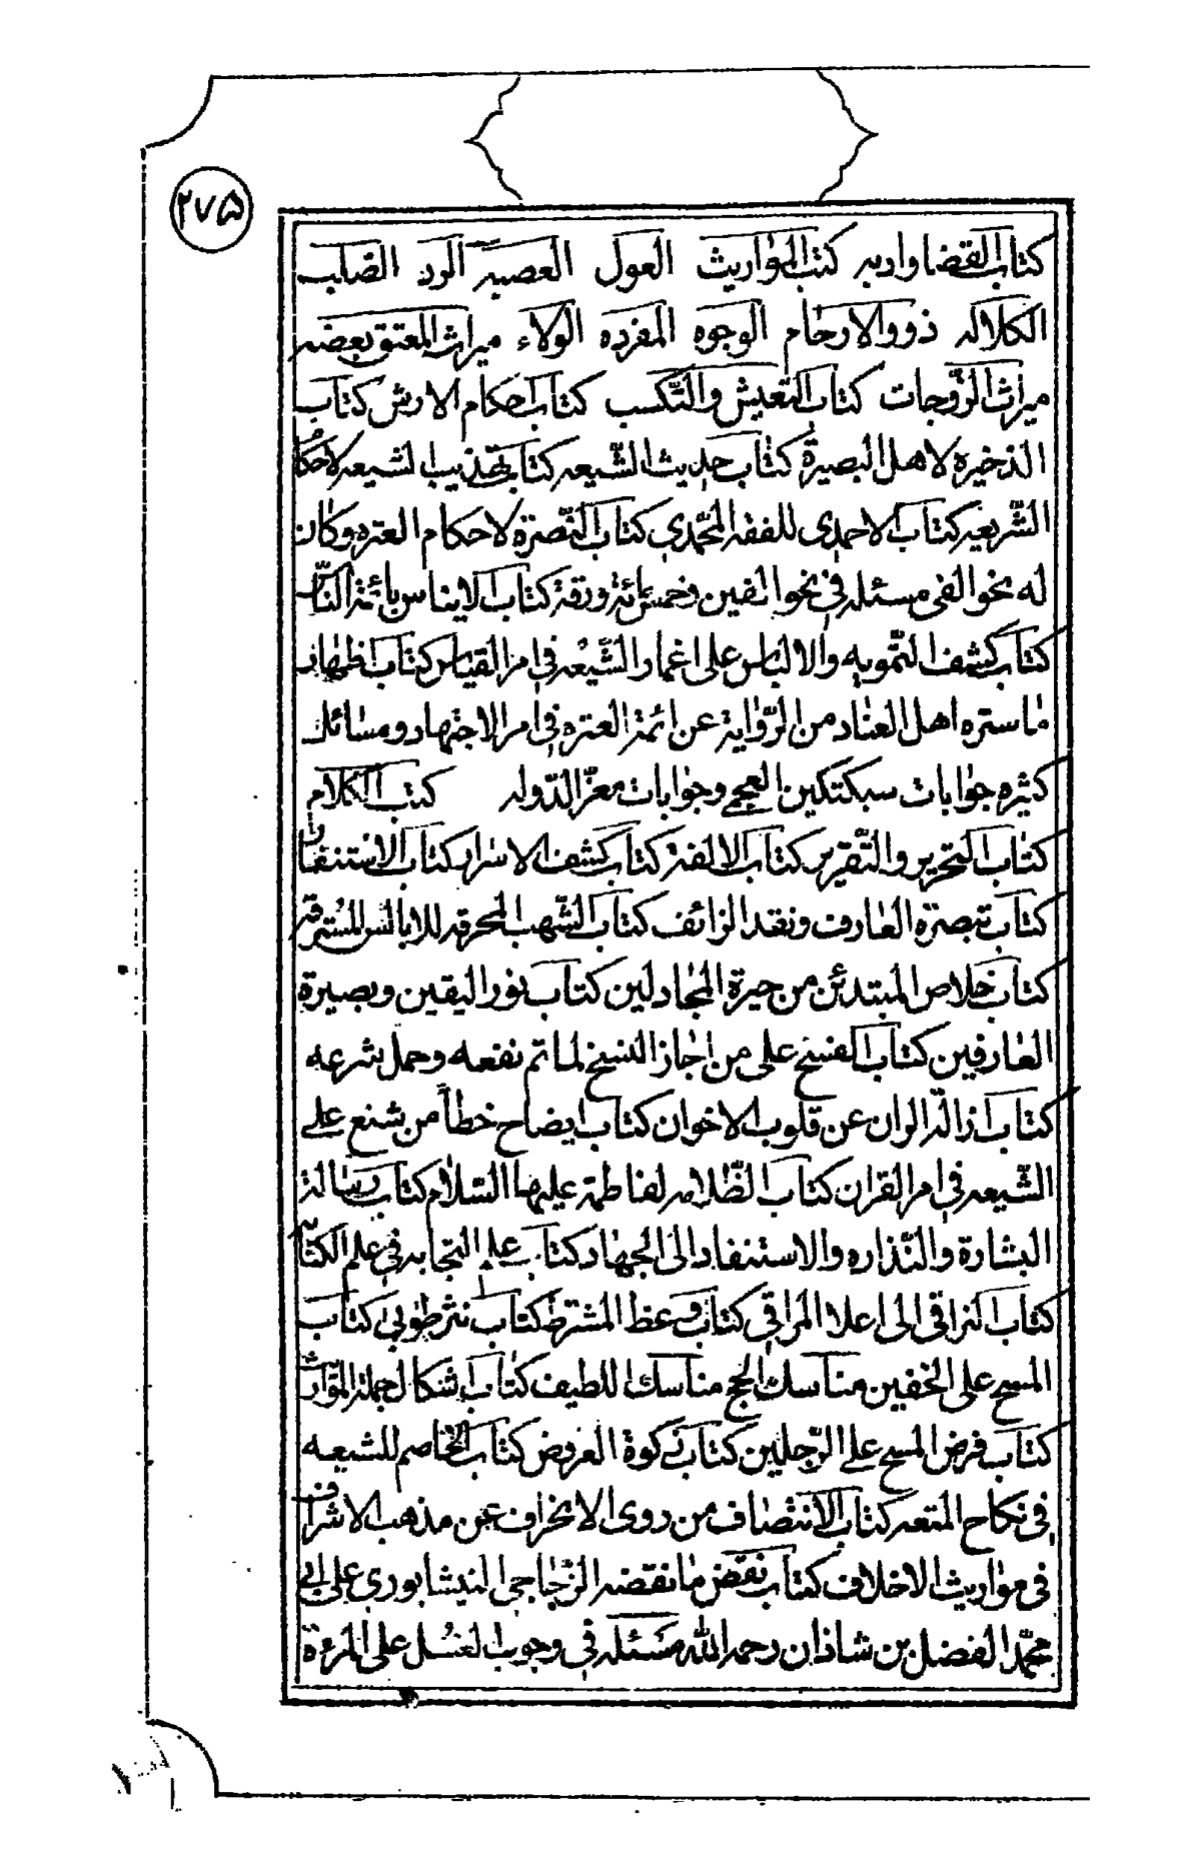 ٢٧۵
كتاب القضا وادبه كتب المواريث العول العصبه الرد الصلب
الكلاله ذوو الارحام الوجوه المفرده الولاء ميراث المعتق بعضه
ميراث الزّوجات كتاب التعيش والتّكسب كتاب احكام الارش كتاب
الذخيره لاهل البصيرة كتاب حديث الشّيعه كتاب تهذيب الشيعه لاحكام
الشّريعه كتاب الاحمدي للفقه المحمّدي كتاب النّصرة لاحكام العتره وكان
له نحو الفي مسئله في نحو الفين وخمس مائة ورقة كتاب الايناس بائمة النّاس
كتاب كشف التّمويه والالباس على اغمار الشّيعه في امر القياس كتاب اظهار
ما ستره اهل العناد من الرّواية عن ائمة العتره في امر الاجتهاد ومسائل
كثيره جوابات سبكتكين العجمي وجوابات معزّ الدّوله كتب الكلام
كتاب التحرير والتّقرير كتاب الالفة كتاب كشف الاسرار كتاب الاستنفار
كتاب تبصرة العارف ونقد الزائف كتاب الشّهب المحرقه للابالس المسترقة
كتاب خلاص المبتدئين من حيرة المجادلين كتاب نور اليقين وبصيرة
العارفين كتاب الفسخ على من اجاز النسخ لما تم نفعه وحمل بشرعه
كتاب ازالة الران عن قلوب الاخوان كتاب ايضاح خطأ من شنع على
الشّيعه في امر القران كتاب الظّلامه لفاطمة عليها السّلام كتاب رسالة
البشارة والنّذاره والاستنفار الى الجهاد كتاب علم النجابه في علم الكتابة
كتاب التراقي الى اعلا المراقي كتاب وعظ المشترط كتاب نثر طوبى كتاب
المسح على الخفين مناسك الحج مناسك اللطيف كتاب اشكال جملة المواريث
كتاب فرض المسح على الرّجلين كتاب زكوة العروض كتاب الخاصم للشيعه
في نكاح المتعه كتاب الانتصاف من ذوي الانحراف عن مذهب الاشراف
في مواريث الاخلاف كتاب نقض ما نقضه الزّجاجي النيشابوري على ابي
محمّد الفضل بن شاذان رحمه الله مسئله في وجوب الغسل على المرءة